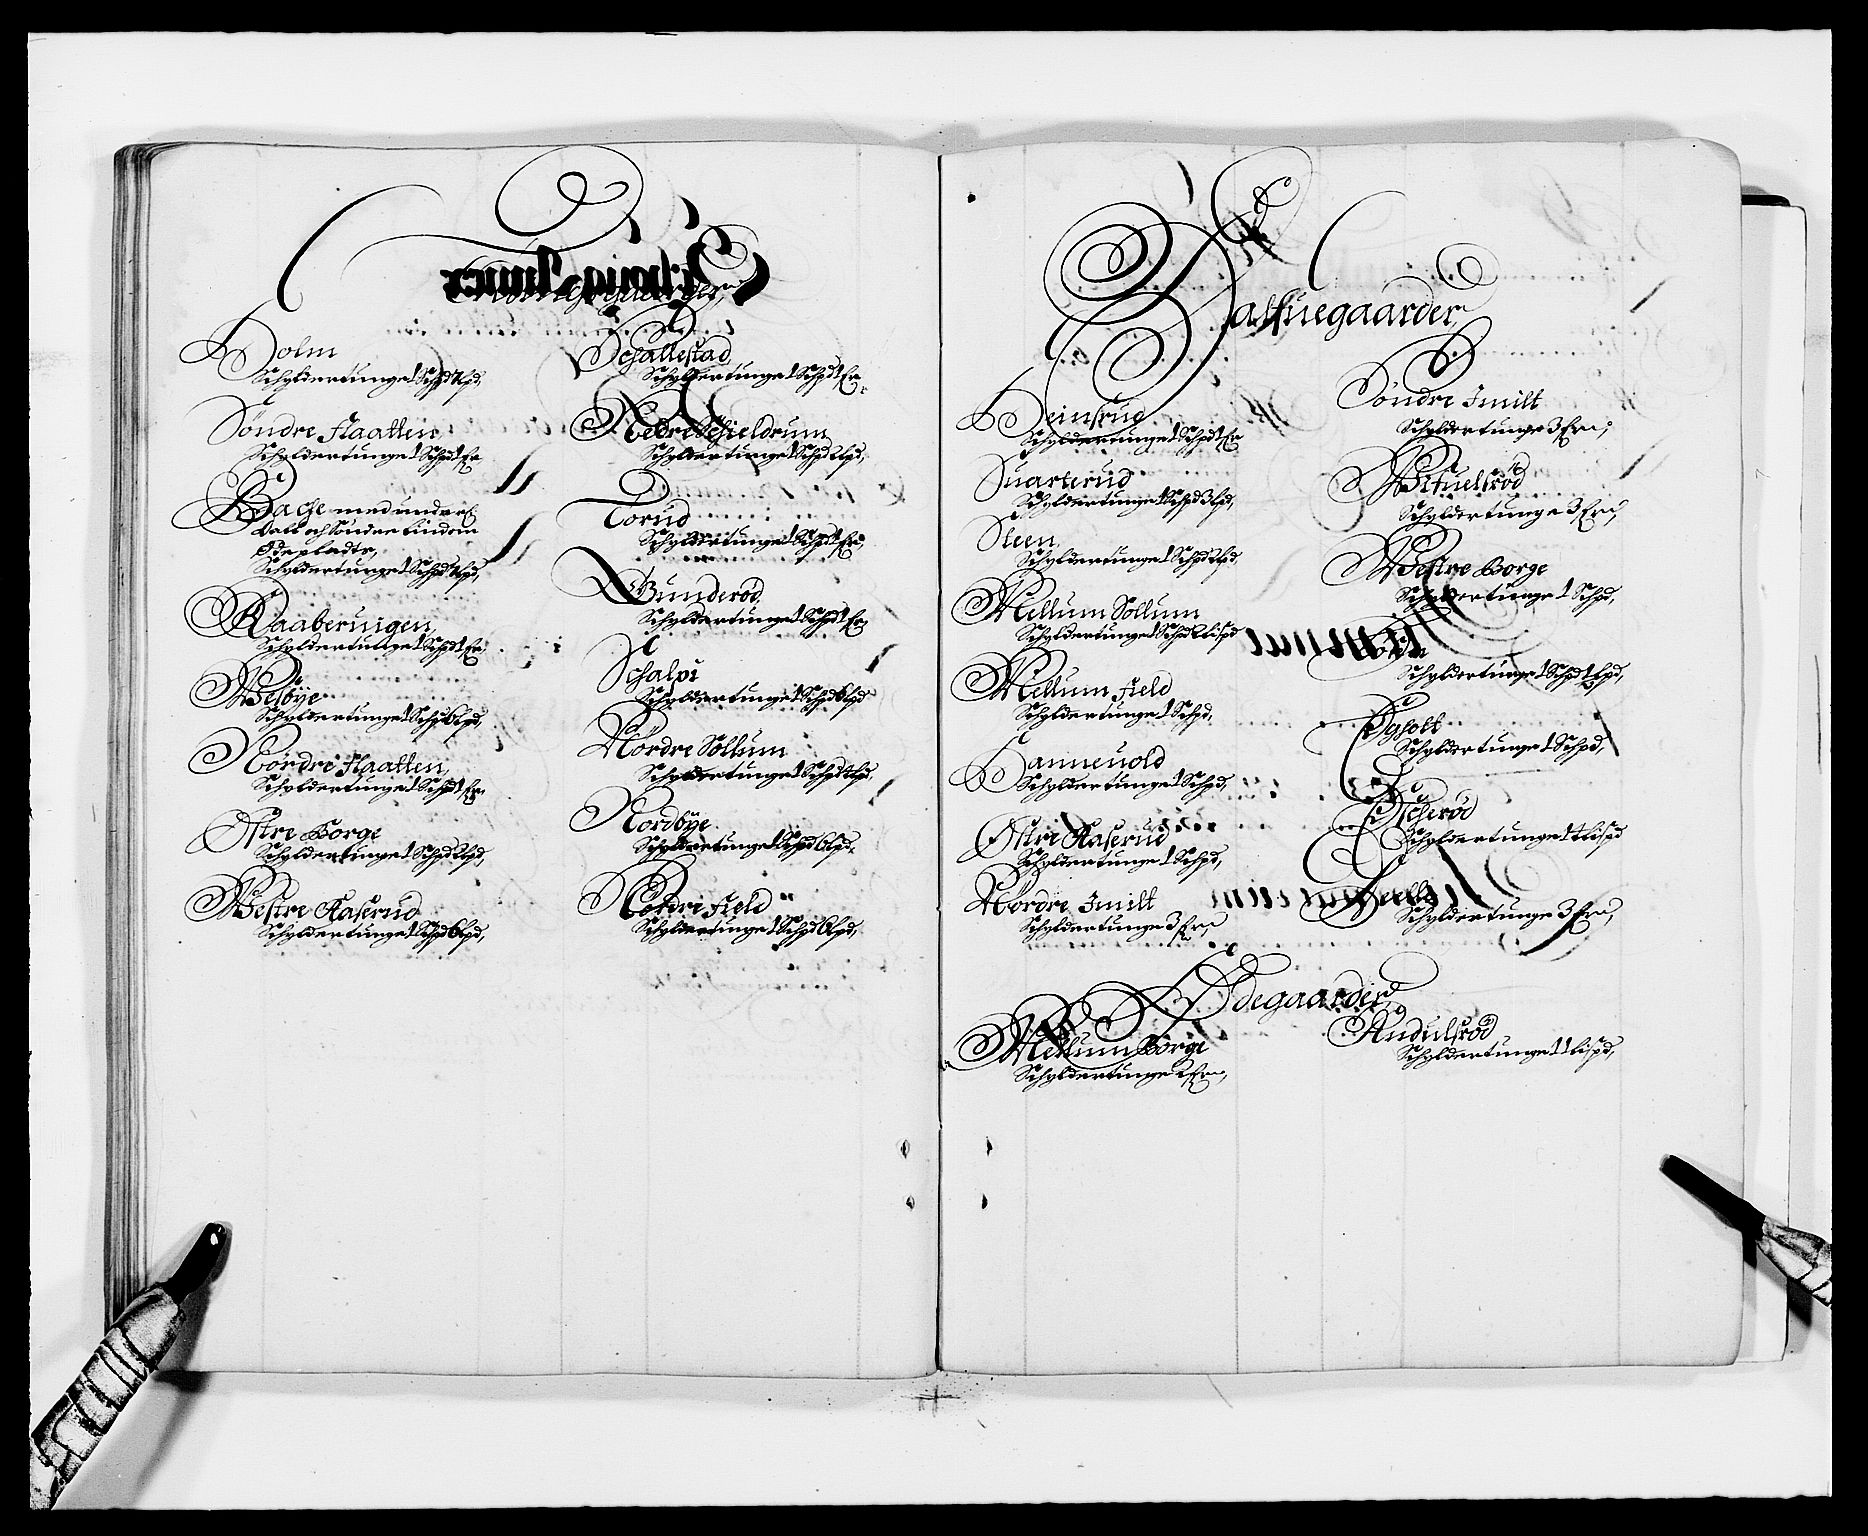 Holm
Schylder tunge 1 Schpd 7 lpd,
Söndre Flaatten
Schylder tunge 1 Schpd 1 fr
Bache med under
Dale och Söndre Eindom
Ödepladtz,
Schylder tunge 1 Schpd 7 lpd,
Raaberuigen,
Schylder tunge 1 Schpd 1 fr
Melbÿe
Schylder tunge 1 Schp 6 lpd,
Nördre Flaatten,
Schylder tunge 1 Schpd 1 fr
Östre Borge
Schylder tunge 1 Schpd 2 lpd,
Westre Aaserud
Schylder tunge 1 Schpd 6 lpd,
Schallestad
Schylder tunge 1 Schpd 1 fr
Nedre Schieldrum
Schylder tunge 1 Schpd 2 lpd,
Torud
Schylder tunge 1 Schpd 1 fr,
Gunderöd
Schylder tunge 1 Schpd 1 fr
Schalpi
Schylder tunge 1 Schpd 6 lpd
Nördre Sollum
Schylder tunge 1 Schpd 4 lpd,
Nordbÿe
Schylder tunge 1 Schpd 6 lpd,
Nordre field
Schylder tunge 1 Schpd 6 lpd,
Halfuegaarder
Heinsrud
Schylder tunge 1 Schpd 1 fr
Suarterud
Schylder tunge 1 Schpd 3 lpd,
Steen,
Schylder tunge 1 Schpd 2 lpd,
Mellum Sollum
Schylder tunge 1 Schpd 2 lispd
Mellum field
Schylder tunge 1 Schpd,
Hanneuold
Schylder tunge 1 Schpd,
Östre Aaserud
Schylder tunge 1 Schpd,
Nördre Smilt
Schylder tunge 3 fr,
Söndre Smilt
Schylder tunge 3 fr,
Wituelsröd
Schylder tunge 3 fr,
Westre Borge
Schylder tunge 1 Schpd,
Schylder tunge 1 Schpd 1 lpd,
Ögholt
Schylder tunge 1 Schpd,
Ascheröd
Schylder tunge 14 lispd
Schylder tunge 3 fr,
Ödegaarder,
Mellum Borge
Schylder tunge 2 fr,
Andulsröd
Schylder tunge 11 lispd,